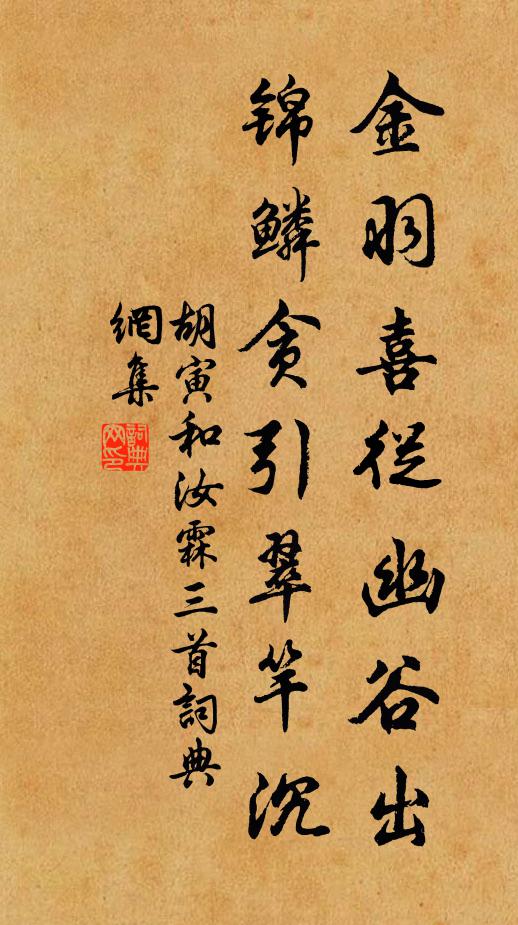 金羽喜從幽谷出
锦鳞贪引翠竿沉
胡寅和汝霖三首詞典
網集
詞典
网印